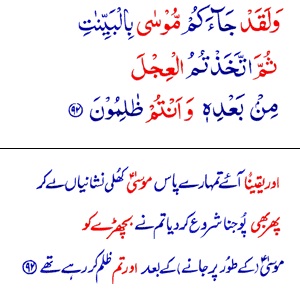 وَلَقَدْ جَآءَكُمْ مُّوْسٰى بِالْبَيِّنٰتِ
ثُمَّ اتَّخَذْتُمُ الْعِجْلَ
مِنْۢ بَعْدِهٖ وَاَنْتُمْ ظٰلِمُوْنَ ﴿۹۲﴾
اور یقیناً آئے تمہارے پاس موسیٰؑ کھلی نشانیاں لے کر
پھر بھی پوجنا شروع کر دیا تم نے بچھڑے کو
موسیٰؑ (کے طور پر جانے) کے بعد اور تم ظلم کر رہے تھے ﴿۹۲﴾